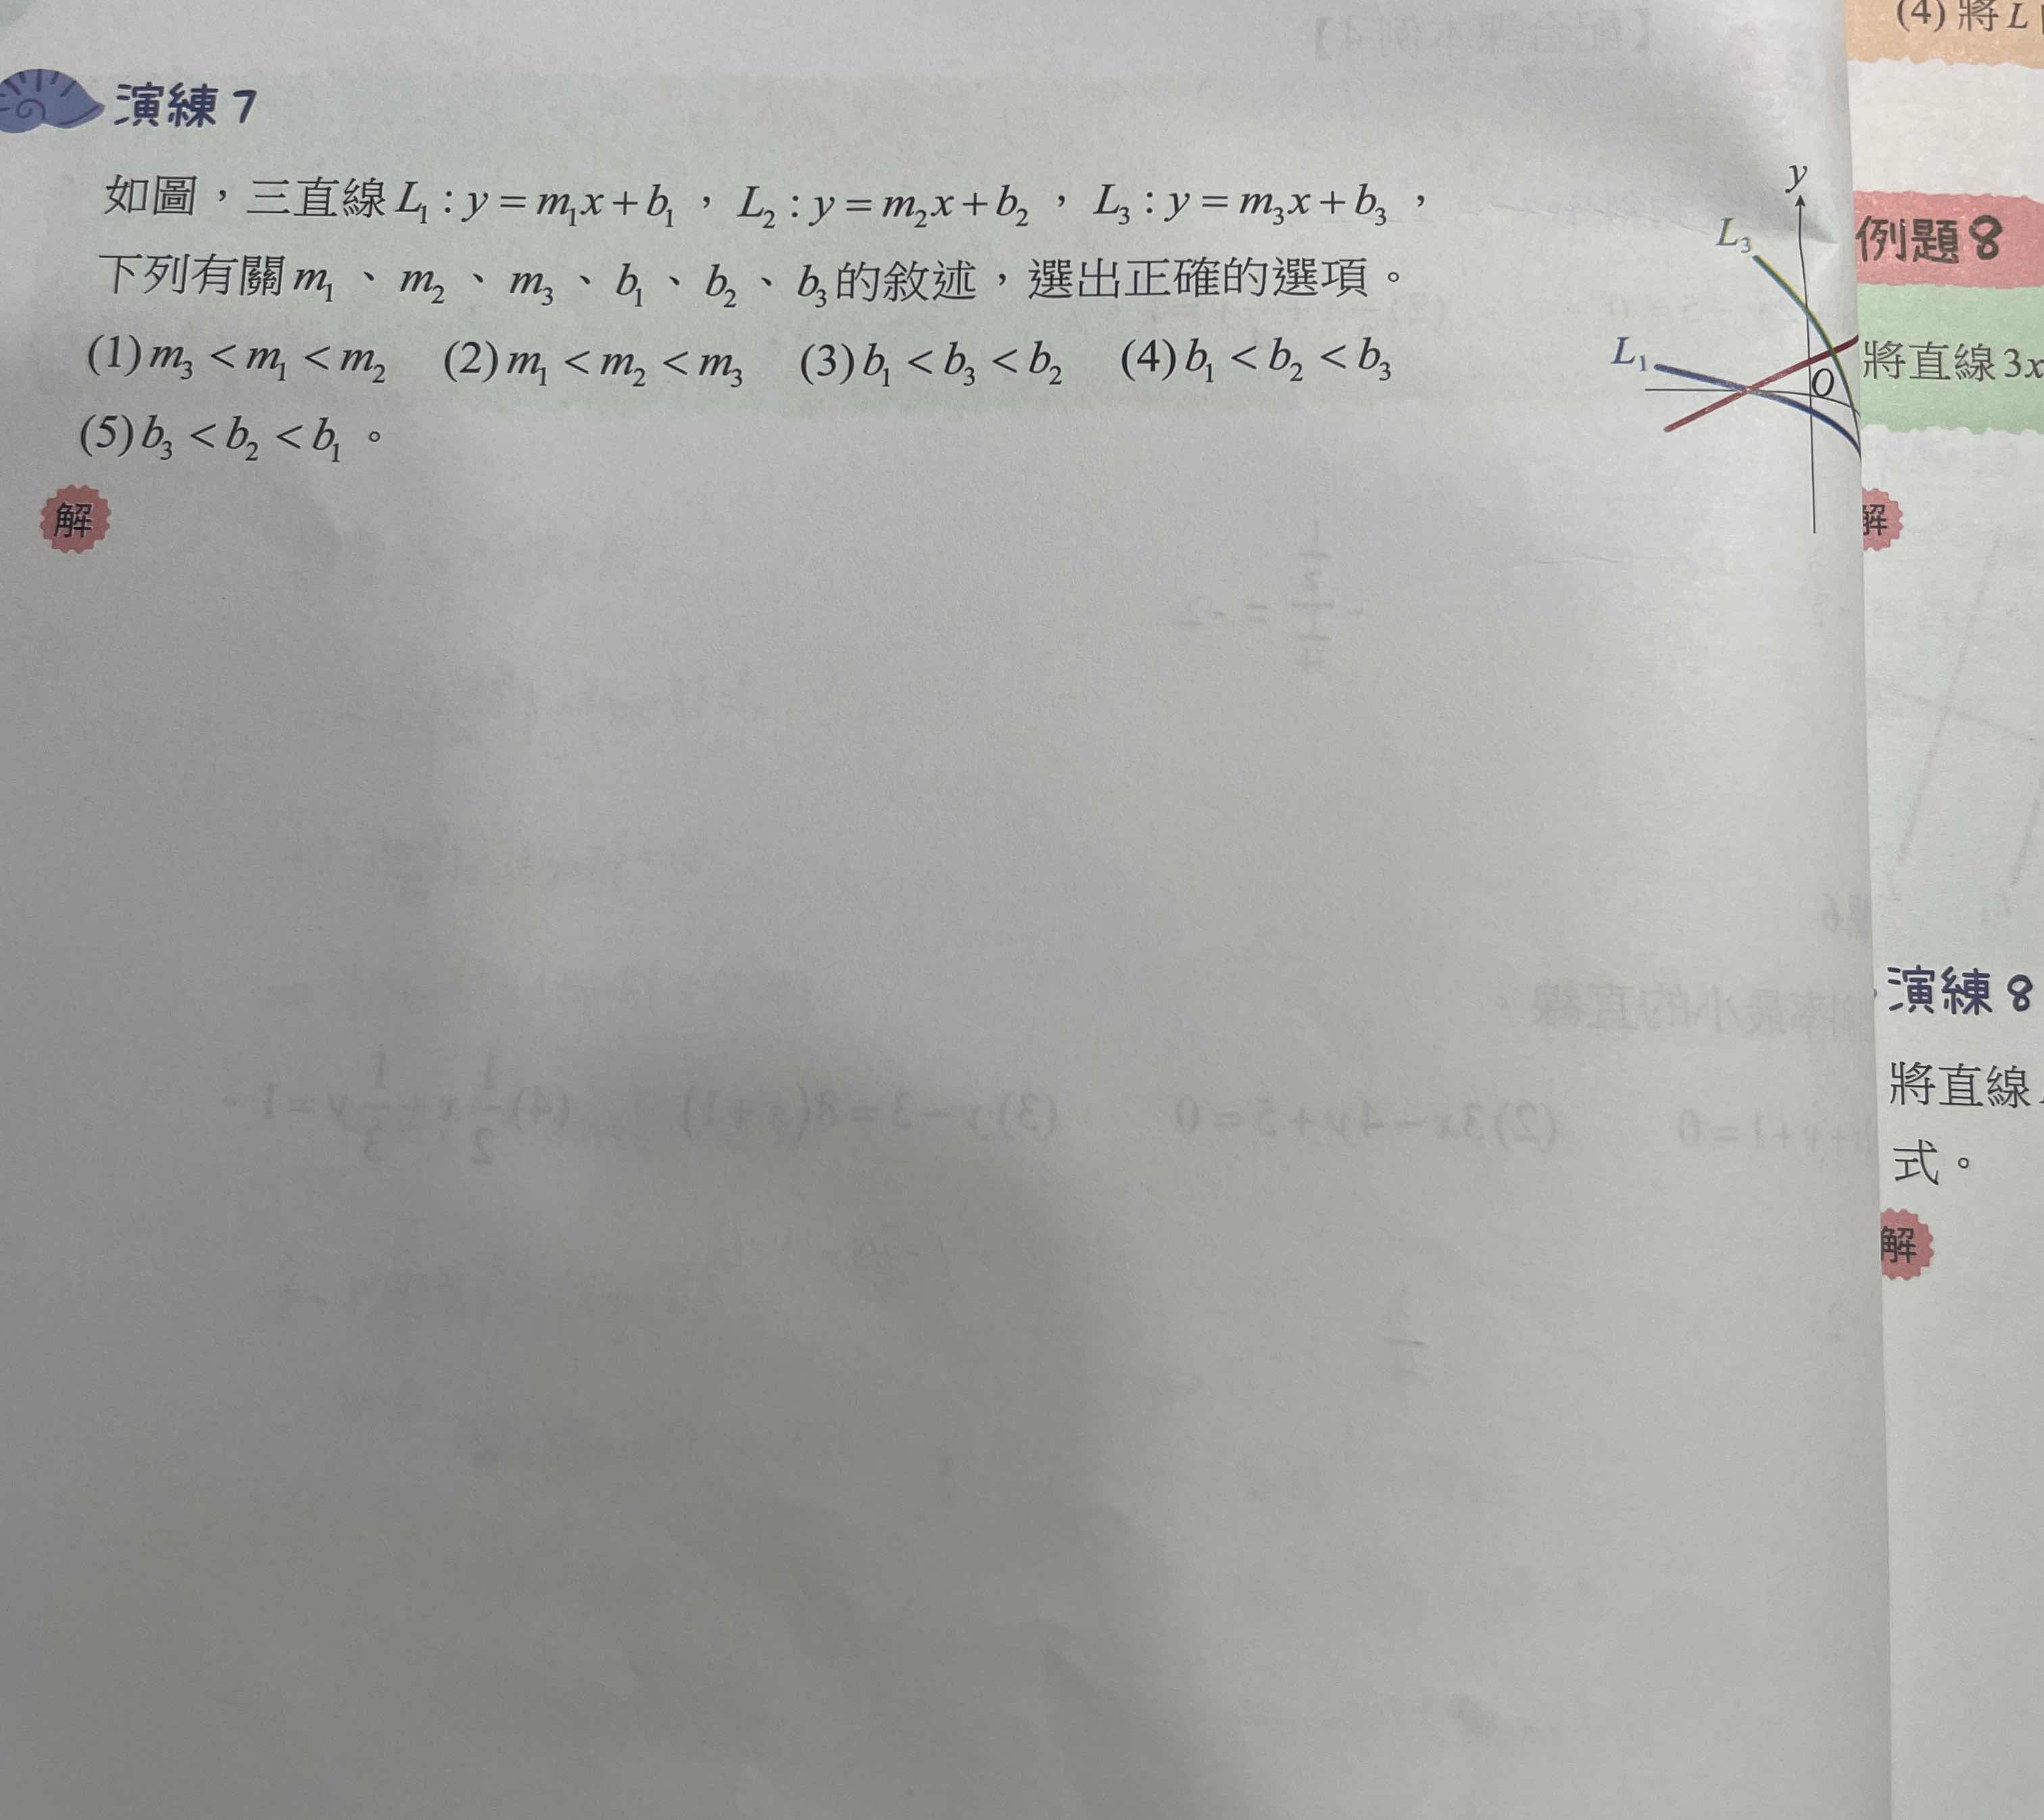 演練 7
如圖，三直線 L₁ : y = m₁x + b₁ ， L₂ : y = m₂x + b₂ ， L₃ : y = m₃x + b₃ ，
下列有關 m₁ 、 m₂ 、 m₃ 、 b₁ 、 b₂ 、 b₃ 的敘述，選出正確的選項。
(1) m₃ < m₁ < m₂ (2) m₁ < m₂ < m₃ (3) b₁ < b₃ < b₂ (4) b₁ < b₂ < b₃
(5) b₃ < b₂ < b₁ 。
解
y
L₃
L₁
O
(4) 將 L
例題 8
將直線 3x
解
演練 8
將直線
式。
解